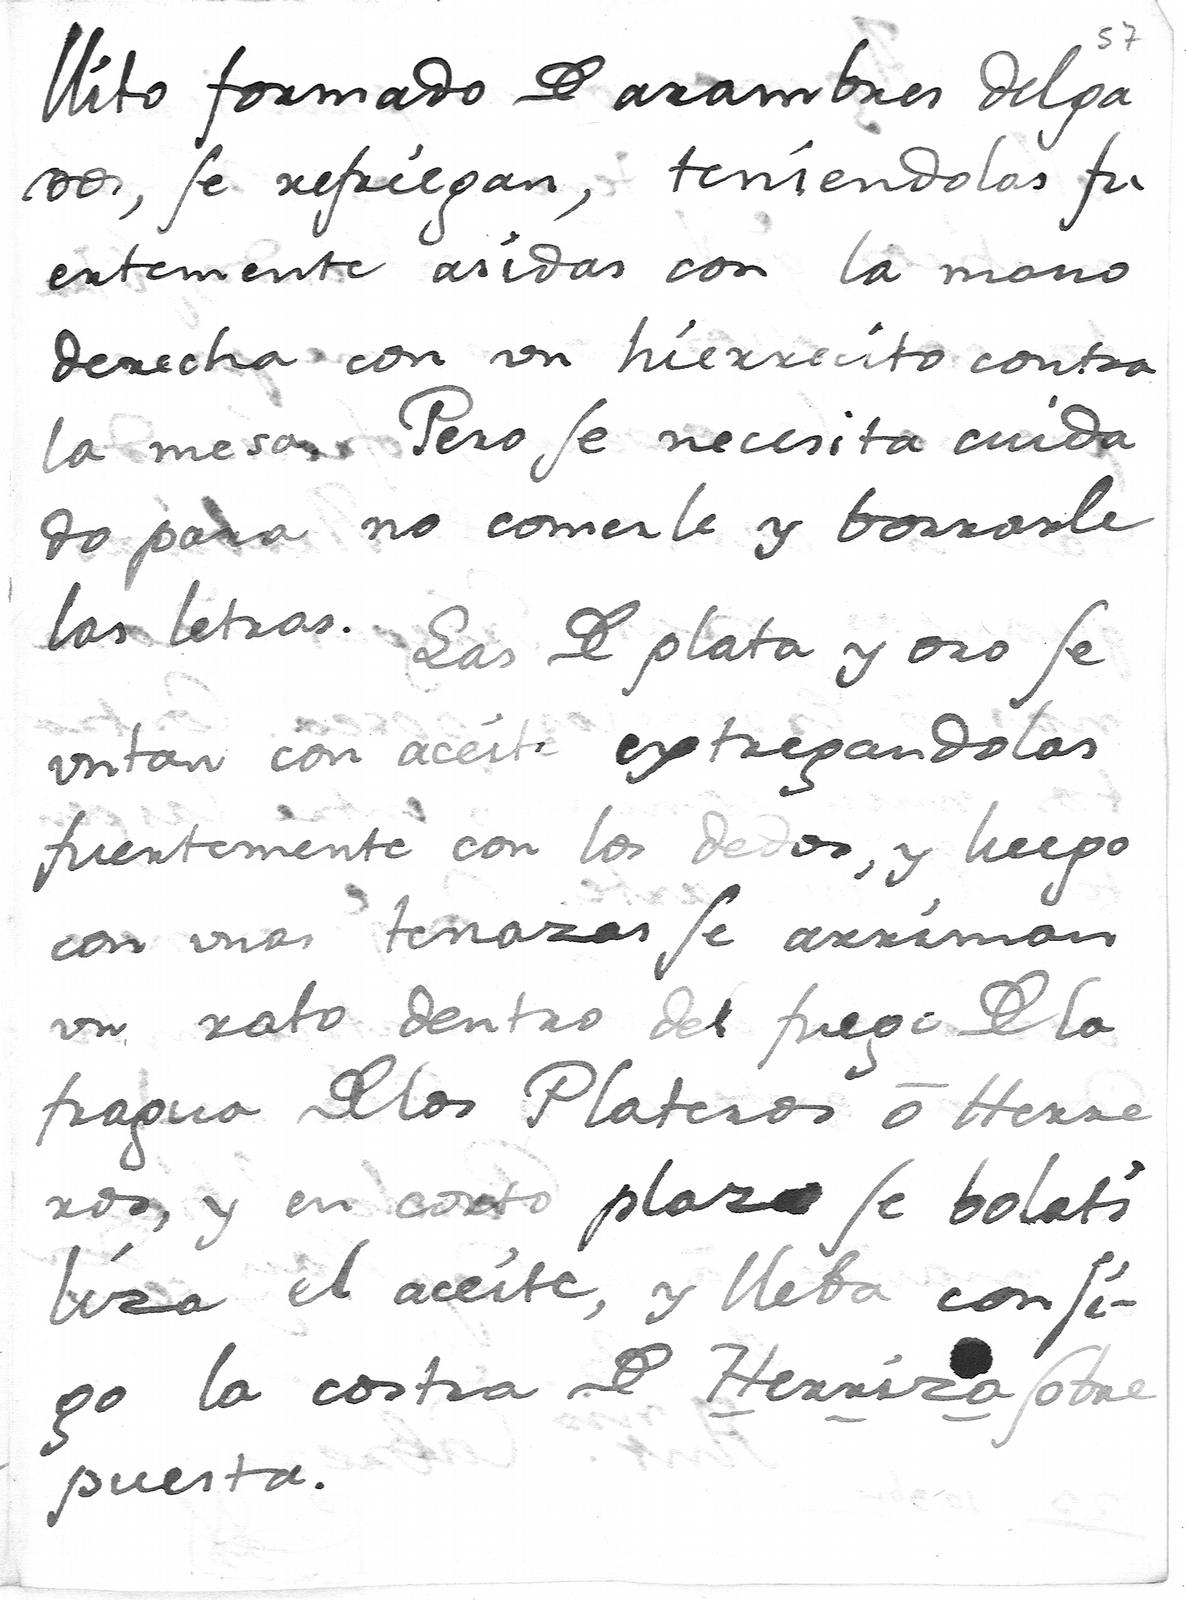 57
llito formado De arambres delga
dos, se refriegan, teniendolas fu
ertemente asidas con la mano
derecha con vn hierrecito contra
la mesa. Pero se necesita cuida
do para no comerle y borrarle
las letras. Las De plata y oro se
vntan con aceite extregandolas
fuertemente con los dedos, y luego
con vnas tenazas se arriman
vn rato dentro del fuego De la
fragua De los Plateros ō Herre
ros, y en corto plazo se bolati
liza el aceite, y lleba consi-
go la costra De Herriza sobre
puesta.